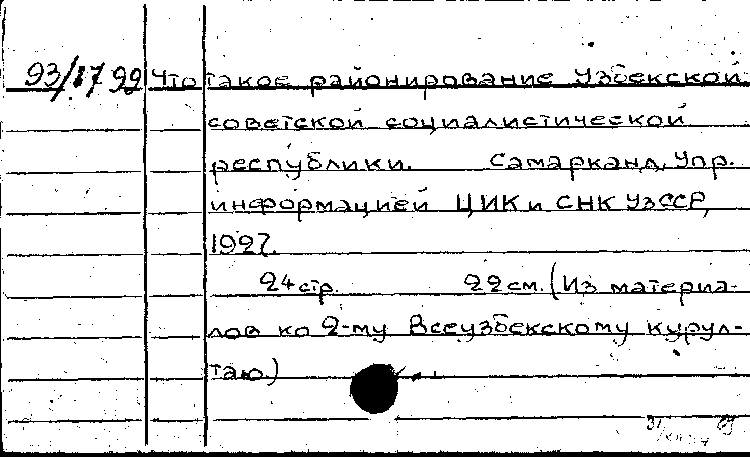 93/1799 Что такое районирование Узбекской
советской социалистической
республики. Самарканд, Упр.
информацией ЦИК и СНК УзССР,
1927.
24 стр. 22 см. (Из материа-
лов ко 2-му Всеузбекскому курул-
таю)